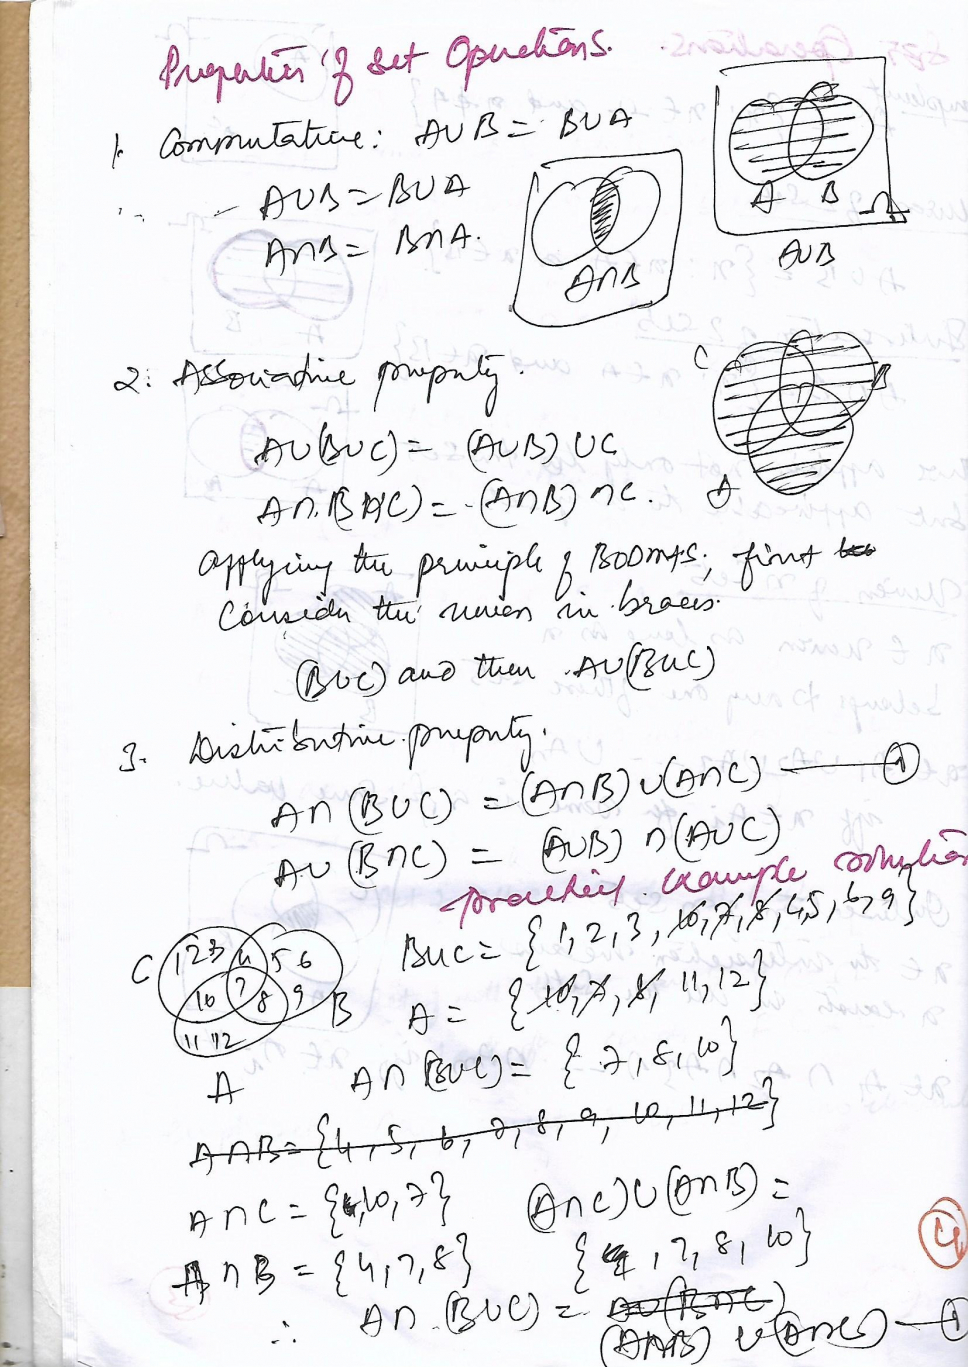 Properties of Set Operations.
1. Commutative: A∪B = B∪A
A∪B = B∪A
A∩B = B∩A.
A∩B
A B Ω
A∪B
2. Associative property.
A∪(B∪C) = (A∪B)∪C
A∩(B∩C) = (A∩B)∩C.
C B A
applying the principle of BODMAS, first
Consider the union in braces.
(B∪C) and then A∪(B∪C)
3. Distributive property.
A∩(B∪C) = (A∩B)∪(A∩C) — 1
A∪(B∩C) = (A∪B)∩(A∪C)
practical example solution
C 1 2 3 4 5 6
10 7 8 9 B
11 12
A
B∪C = {1, 2, 3, 10, 7, 8, 4, 5, 6, 9}
A = {10, 7, 8, 11, 12}
A∩(B∪C) = {7, 8, 10}
A∩B = {4, 5, 6, 7, 8, 9, 10, 11, 12}
A∩C = {4, 10, 7}
(A∩C)∪(A∩B) =
A∩B = {4, 7, 8}
{4, 7, 8, 10}
∴ A∩(B∪C) = A∪(B∩C)
(A∩B)∪(A∩C) — 1
4